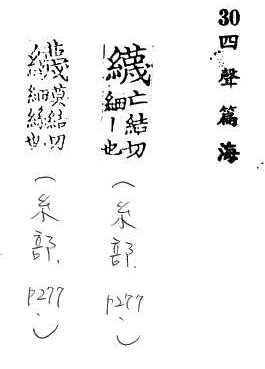 30四聲篇海
𥾝亡結切細丨也
(糸部. P277、)
莫結切細絲也
(糸部. P277、)